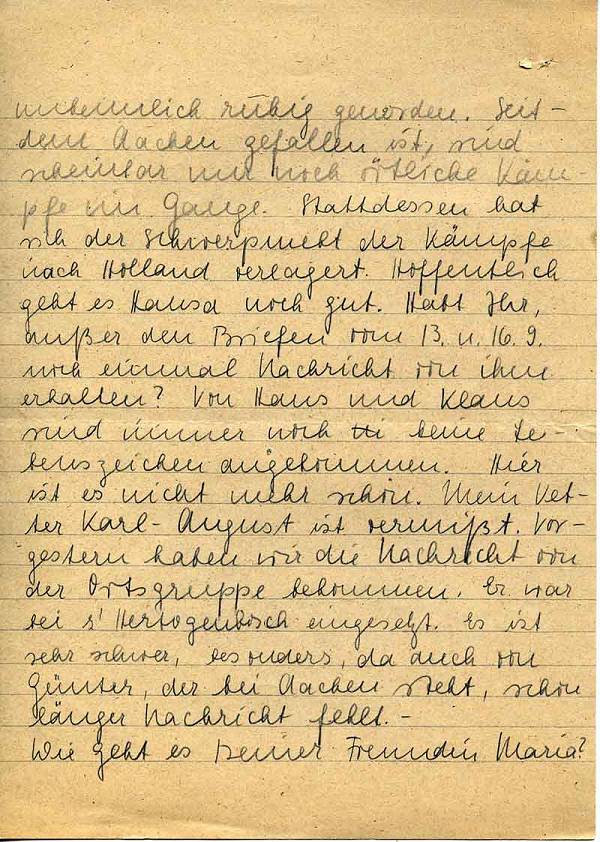 unheimlich ruhig geworden. Seit-
dem Aachen gefallen ist, sind
scheinbar nur noch örtliche Käm-
pfe im Gange. Stattdessen hat
sich der Schwerpunkt der Kämpfe
nach Holland verlagert. Hoffentlich
geht es Hansa noch gut. Habt Ihr,
außer den Briefen vom 13. u. 16. 9.
noch einmal Nachricht von ihm
erhalten? Von Hans und Klaus
sind immer noch keine Le-
benszeichen angekommen. Hier
ist es nicht mehr schön. Mein Vet-
ter Karl-August ist vermißt. Vor-
gestern haben wir die Nachricht von
der Ortsgruppe bekommen. Er war
bei s' Hertogenbosch eingesetzt. Es ist
sehr schwer, besonders, da auch von
Günter, der bei Aachen steht, schon
länger Nachricht fehlt. -
Wie geht es Deiner Freundin Maria?